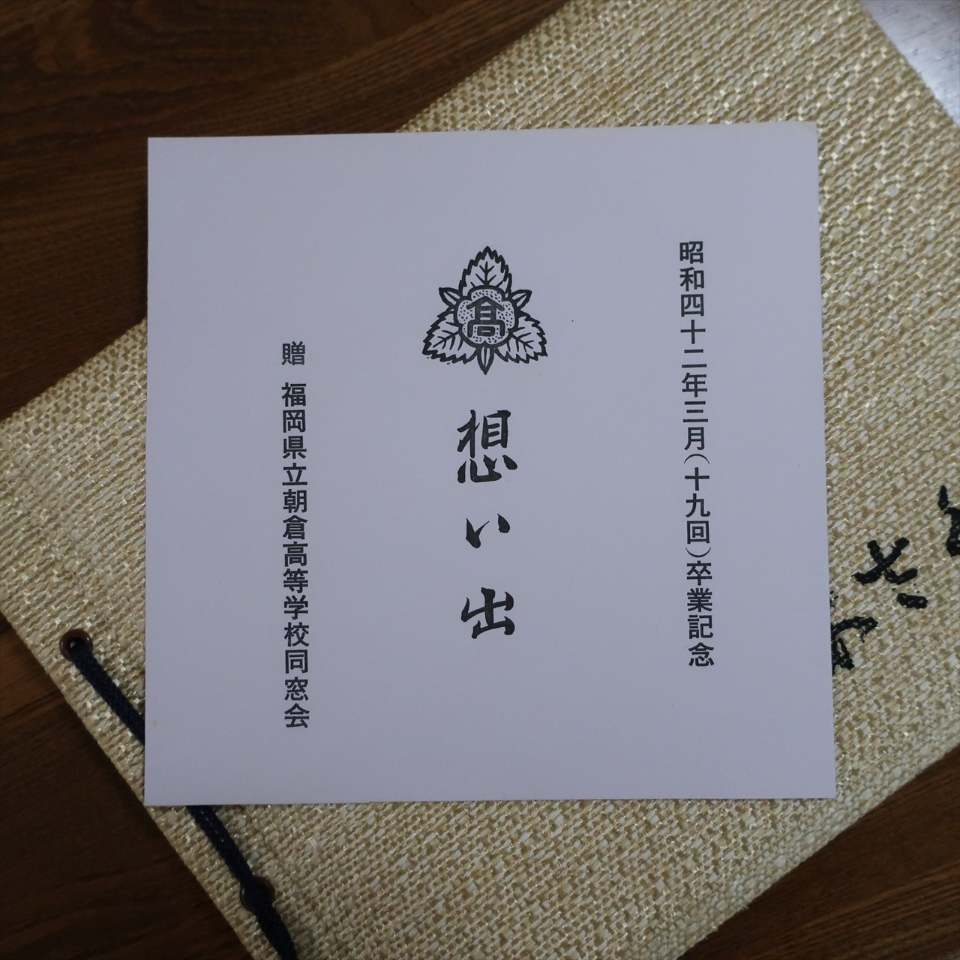 昭和四十二年三月(十九回)卒業記念
髙
想い出
贈 福岡県立朝倉高等学校同窓会